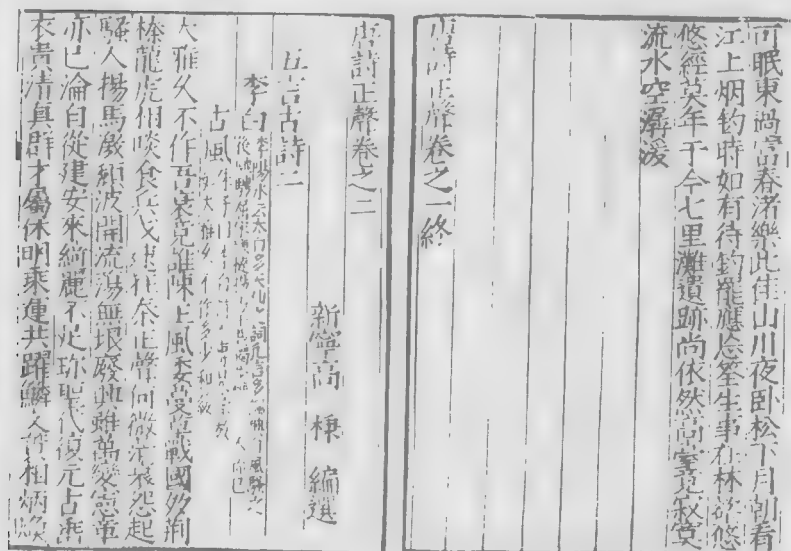 可眠東過富春渚樂此佳山川夜卧松下月朝看
江上烟釣時如有待釣罷應忘筌生事在林壑悠
悠經暮年于今七里灘遺跡尚依然高臺竟寂寞
流水空潺湲
唐詩正聲卷之一終
唐詩正聲卷之二
新寧高棅編選
五言古詩二
李白
古風
大雅久不作吾衰竟誰陳王風委蔓草戰國多荆
榛龍虎相啖食兵戈逮狂秦正聲何微茫哀怨起
騷人揚馬激頹波開流蕩無垠廢興雖萬變憲章
亦已淪自從建安來綺麗不足珍聖代復元古垂
衣貴清真群才屬休明乘運共躍鱗文質相炳煥